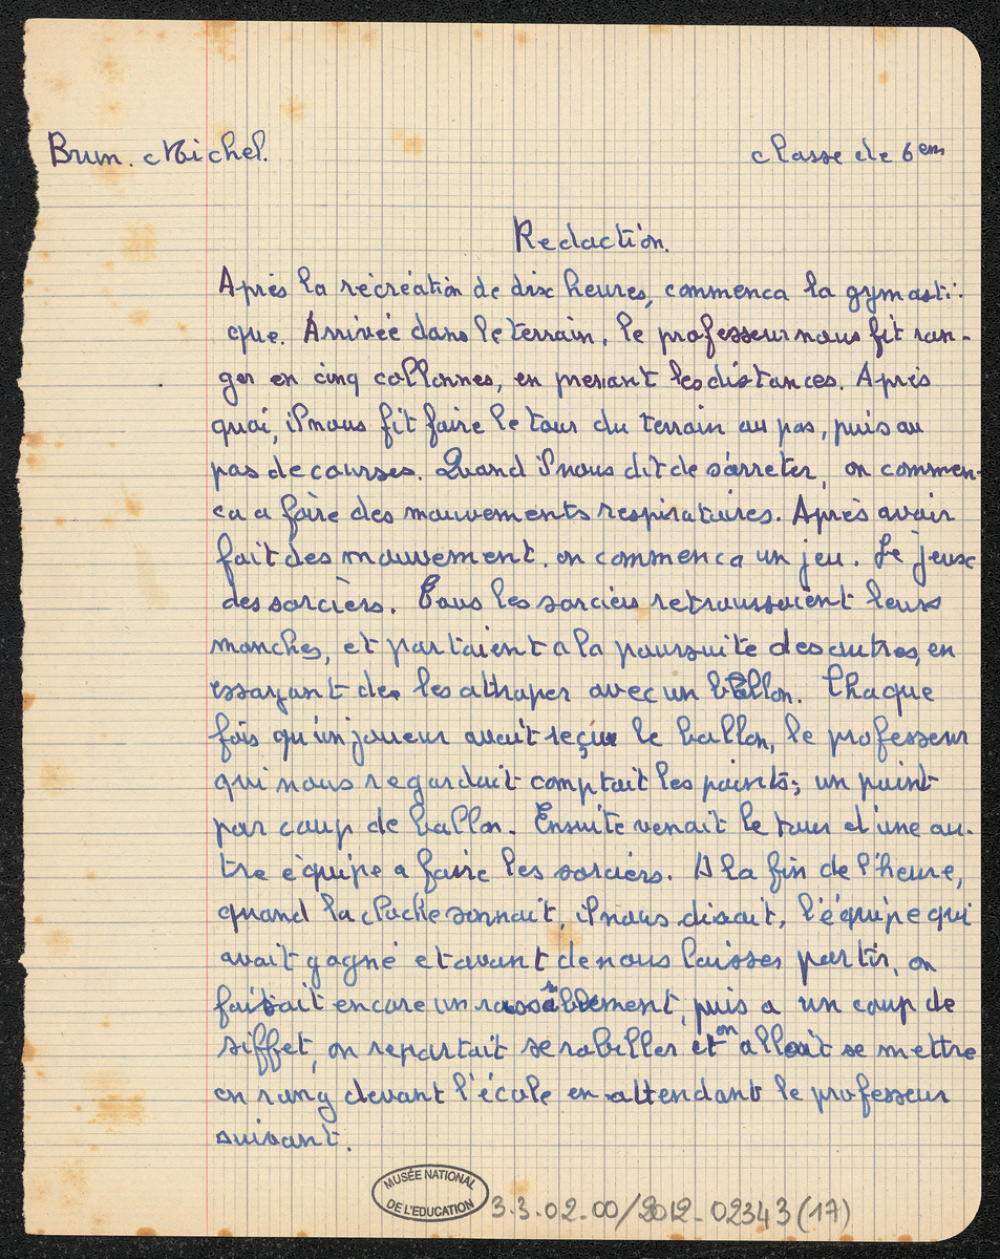 Brun. Michel.
classe de 6em
Redaction.
Après la récréation de dix heures, commenca la gymasti-
que. Arrivée dans le terrain, le professeur nous fit ran-
ger en cinq collonnes, en prenant les distances. Après
quoi, il nous fit faire le tour du terrain au pas, puis au
pas de courses. Quand il nous dit de s'arreter, on commen-
ca a faire des mouvements respiratoires. Après avoir
fait des mouvement. on commenca un jeu. Le jeux
des sorcièrs. Tous les sorciers retroussaient leurs
manches, et partaient a la poursuite des autres, en
essayant de les attraper avec un ballon. Chaque
fois qu'un joueur avait reçu le ballon, le professeur
qui nous regardait comptait les points; un point
par coup de ballon. Ensuite venait le tour d'une au-
tre équipe a faire les sorciers. A la fin de l'heure,
quand la cloche sonnait, il nous disait, l'équipe qui
avait gagné et avant de nous laisser partir, on
faisait encore un rassemblement, puis a un coup de
siffet, on repartait se rabiller et on allait se mettre
en rang devant l'école en attendant le professeur
suivant.
MUSÉE NATIONAL
DE L'EDUCATION
3.3.02.00/2012-02343(17)